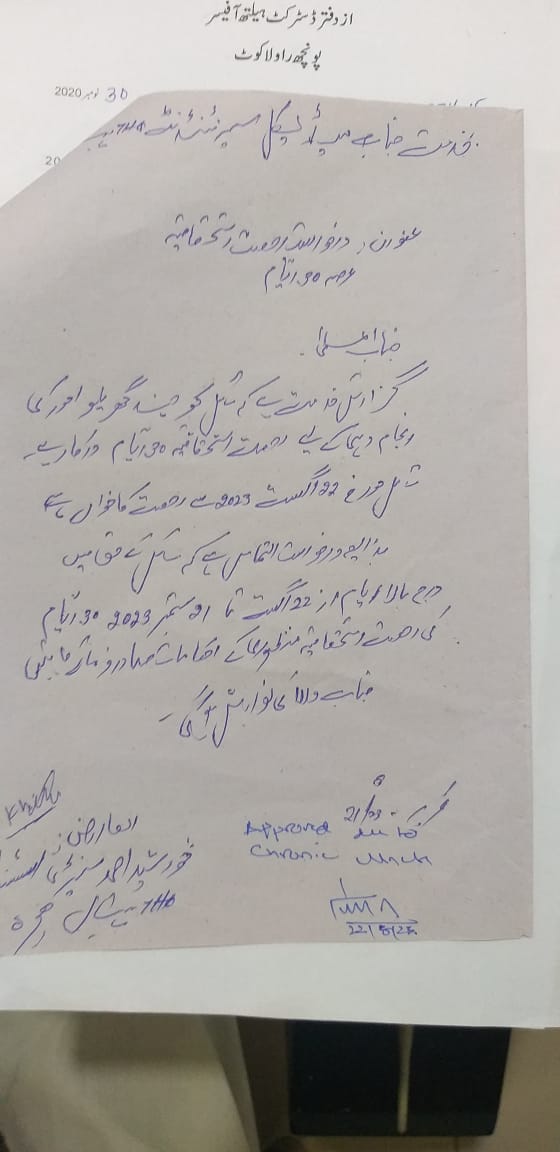 از دفتر ڈسٹرکٹ ہیلتھ آفیسر
پونچھ راولاکوٹ
30 نومبر 2020
20
بخدمت جناب میڈیکل سپرنٹنڈنٹ THQ
عنوان: درخواست رخصت استحقاقیہ
عرصہ 30 ایام
جناب اعلیٰ!
گزارش خدمت ہے کہ سائل کو چند گھریلو امور کی
انجام دہی کے لیے رخصت استحقاقیہ 30 ایام درکار ہے۔
سائل مورخہ 22 اگست 2023 سے رخصت کا خواہاں ہے
بذریعہ درخواست التماس ہے کہ سائل کے حق میں
درج بالا ایام از 22 اگست تا 21 ستمبر 2023 30 ایام
کی رخصت استحقاقیہ منظوری کے احکامات صادر فرمائے جائیں
جناب والا کی نوازش ہو گی۔
العارض
خورشید احمد
THQ ہسپتال ہجیرہ
Approved due to
chronic
22/8/23